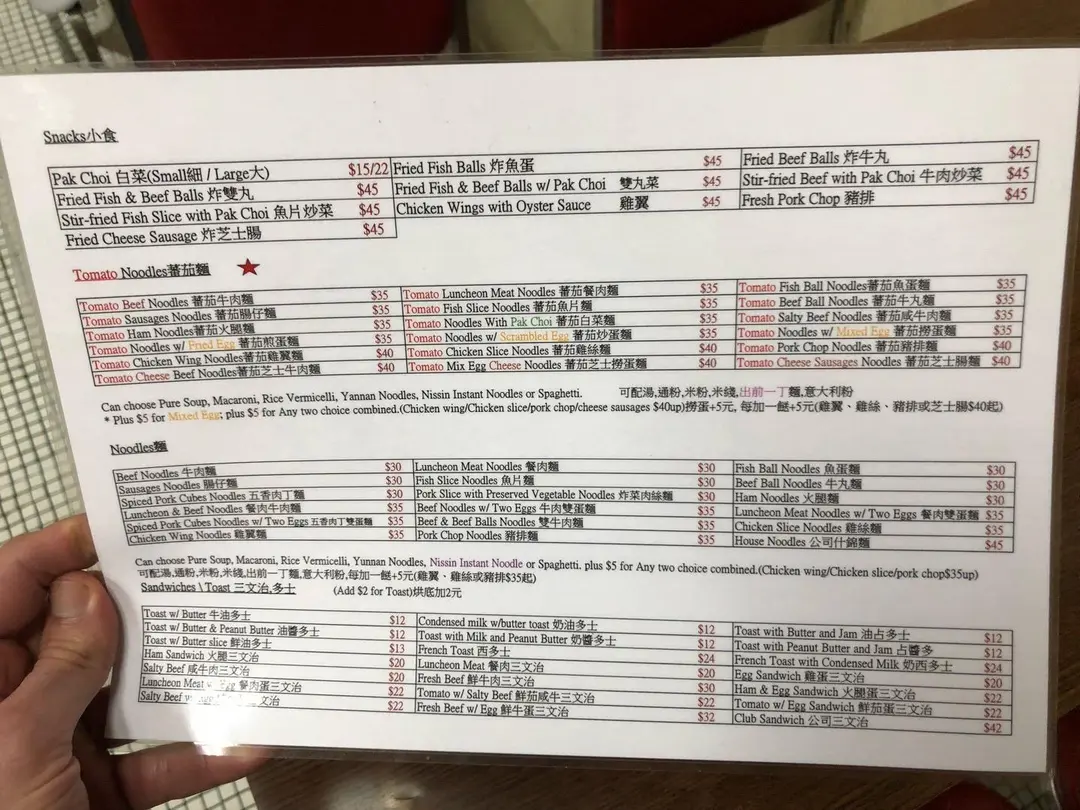 Snacks小食
Pak Choi 白菜(Small細 / Large大) $15/22 Fried Fish Balls 炸魚蛋 $45 Fried Beef Balls 炸牛丸 $45
Fried Fish & Beef Balls 炸雙丸 $45 Fried Fish & Beef Balls w/ Pak Choi 雙丸菜 $45 Stir-fried Beef with Pak Choi 牛肉炒菜 $45
Stir-fried Fish Slice with Pak Choi 魚片炒菜 $45 Chicken Wings with Oyster Sauce 雞翼 $45 Fresh Pork Chop 豬排 $45
Fried Cheese Sausage 炸芝士腸 $45
Tomato Noodles蕃茄麵
Tomato Beef Noodles 蕃茄牛肉麵 $35 Tomato Luncheon Meat Noodles 蕃茄餐肉麵 $35 Tomato Fish Ball Noodles蕃茄魚蛋麵 $35
Tomato Sausages Noodles 蕃茄腸仔麵 $35 Tomato Fish Slice Noodles 蕃茄魚片麵 $35 Tomato Beef Ball Noodles 蕃茄牛丸麵 $35
Tomato Ham Noodles蕃茄火腿麵 $35 Tomato Noodles With Pak Choi 蕃茄白菜麵 $35 Tomato Salty Beef Noodles 蕃茄咸牛肉麵 $35
Tomato Noodles w/ Fried Egg 蕃茄煎蛋麵 $35 Tomato Noodles w/ Scrambled Egg 蕃茄炒蛋麵 $35 Tomato Noodles w/ Mixed Egg 蕃茄撈蛋麵 $35
Tomato Chicken Wing Noodles蕃茄雞翼麵 $40 Tomato Chicken Slice Noodles 蕃茄雞絲麵 $40 Tomato Pork Chop Noodles 蕃茄豬排麵 $40
Tomato Cheese Beef Noodles蕃茄芝士牛肉麵 $40 Tomato Mix Egg Cheese Noodles 蕃茄芝士撈蛋麵 $40 Tomato Cheese Sausages Noodles 蕃茄芝士腸麵 $40
Can choose Pure Soup, Macaroni, Rice Vermicelli, Yannan Noodles, Nissin Instant Noodles or Spaghetti. 可配湯,通粉,米粉,米綫,出前一丁麵,意大利粉
* Plus $5 for Mixed Egg; plus $5 for Any two choice combined.(Chicken wing/Chicken slice/pork chop/cheese sausages $40up)撈蛋+5元, 每加一餸+5元(雞翼、雞絲、豬排或芝士腸$40起)
Noodles麵
Beef Noodles 牛肉麵 $30 Luncheon Meat Noodles 餐肉麵 $30 Fish Ball Noodles 魚蛋麵 $30
Sausages Noodles 腸仔麵 $30 Fish Slice Noodles 魚片麵 $30 Beef Ball Noodles 牛丸麵 $30
Spiced Pork Cubes Noodles 五香肉丁麵 $30 Pork Slice with Preserved Vegetable Noodles 炸菜肉絲麵 $30 Ham Noodles 火腿麵 $30
Luncheon & Beef Noodles 餐肉牛肉麵 $35 Beef Noodles w/ Two Eggs 牛肉雙蛋麵 $35 Luncheon Meat Noodles w/ Two Eggs 餐肉雙蛋麵 $35
Spiced Pork Cubes Noodles w/ Two Eggs 五香肉丁雙蛋麵 $35 Beef & Beef Balls Noodles 雙牛肉麵 $35 Chicken Slice Noodles 雞絲麵 $35
Chicken Wing Noodles 雞翼麵 $35 Pork Chop Noodles 豬排麵 $35 House Noodles 公司什錦麵 $45
Can choose Pure Soup, Macaroni, Rice Vermicelli, Yunnan Noodles, Nissin Instant Noodle or Spaghetti. plus $5 for Any two choice combined.(Chicken wing/Chicken slice/pork chop$35up)
可配湯,通粉,米粉,米綫,出前一丁麵,意大利粉,每加一餸+5元(雞翼、雞絲或豬排$35起)
Sandwiches \ Toast 三文治,多士 (Add $2 for Toast)烘底加2元
Toast w/ Butter 牛油多士 $12 Condensed milk w/butter toast 奶油多士 $12 Toast with Butter and Jam 油占多士 $12
Toast w/ Butter & Peanut Butter 油醬多士 $12 Toast with Milk and Peanut Butter 奶醬多士 $12 Toast with Peanut Butter and Jam 占醬多 $12
Toast w/ Butter slice 鮮油多士 $13 French Toast 西多士 $24 French Toast with Condensed Milk 奶西多士 $24
Ham Sandwich 火腿三文治 $20 Luncheon Meat 餐肉三文治 $20 Egg Sandwich 雞蛋三文治 $20
Salty Beef 咸牛肉三文治 $20 Fresh Beef 鮮牛肉三文治 $30 Ham & Egg Sandwich 火腿蛋三文治 $22
Luncheon Meat w/ Egg 餐肉蛋三文治 $22 Tomato w/ Salty Beef 鮮茄咸牛三文治 $22 Tomato w/ Egg Sandwich 鮮茄蛋三文治 $22
Salty Beef 文治 $22 Fresh Beef w/ Egg 鮮牛蛋三文治 $32 Club Sandwich 公司三文治 $42